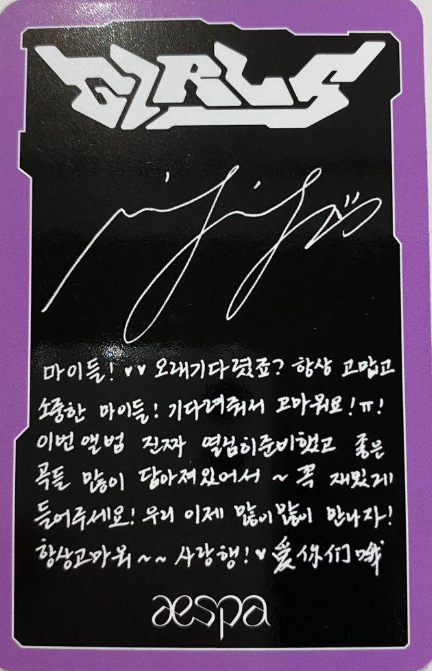 GIRLS
마이들! ♥♥ 오래기다렸죠? 항상 고맙고
소중한 마이들! 기다려줘서 고마워요! π!
이번 앨범 진짜 열심히준비했고 좋은
곡들 많이 담아져있어서 ~ 꼭 재밌게
들어주세요! 우리 이제 많이많이 만나자!
항상고마워 ~~ 사랑행! ♥ 爱你们哦
aespa